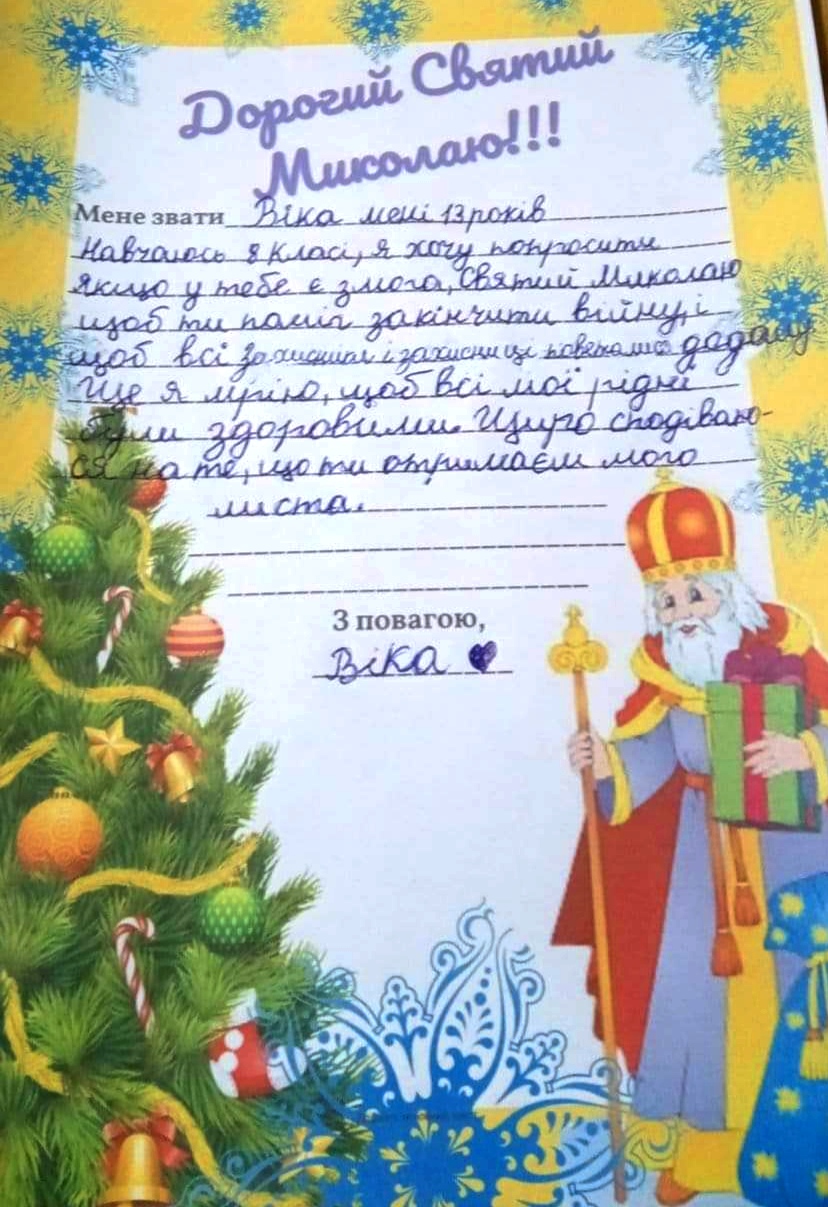 Дорогий Святий
Миколаю!!!
Мене звати Віка мені 13 років
Навчаюсь 8 класі, я хочу попросити
якщо у тебе є змога, Святий Миколаю
щоб ти поміг закінчити війну, і
щоб всі захисники і захисниці додому
Ще я мрію, щоб всі мої рідні
були здоровими. Щиро сподіваю-
ся на те, що ти отримаєш мого
листа.
З повагою,
Віка